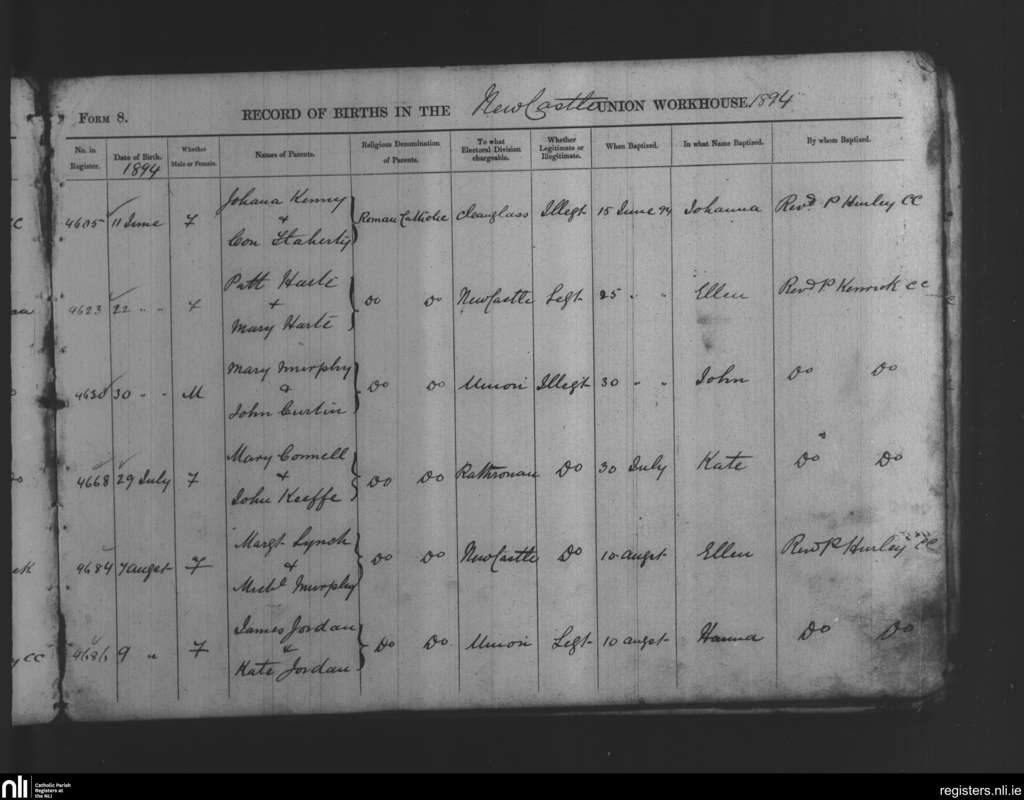 FORM 8.
RECORD OF BIRTHS IN THE NewCastle UNION WORKHOUSE. 1894
No. in Register. Date of Birth. 1894 Whether Male or Female. Names of Parents. Religious Denomination of Parents. To what Electoral Division chargeable. Whether Legitimate or Illegitimate. When Baptized. In what Name Baptized. By whom Baptized.
Johana Kenny
4605 11 June F & Roman Catholic Cleanglass Illegt 15 June 94 Johanna Revd P Hurley CC
Con Flaherty
Patt Harte
4623 22 " " F & Do Do NewCastle Legt 25 " " Ellen Revd P Kenrick CC
Mary Harte
Mary Murphy
4630 30 " " M & Do Do Union Illegt 30 " " John Do Do
John Curtin
Mary Connell
4668 29 July F & Do Do Rathronan Do 30 July Kate Do Do
John Keeffe
Margt Lynch
4684 7 augst F & Do Do NewCastle Do 10 augst Ellen Revd P Hurley CC
Michl Murphy
James Jordan
4686 9 " F & Do Do Union Legt 10 augst Hanna Do Do
Kate Jordan
CC
nli Catholic Parish Registers at the NLI
registers.nli.ie